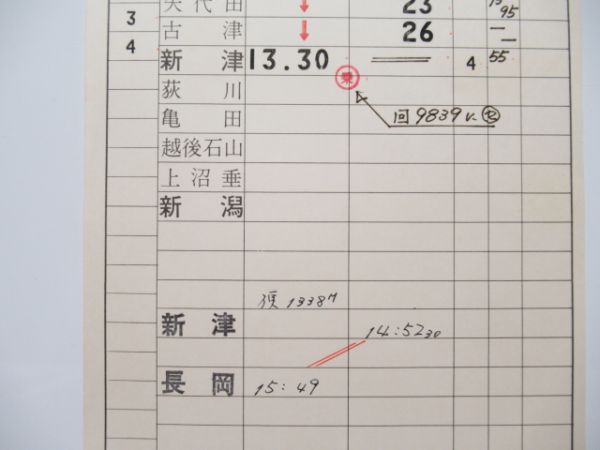 矢代田 ↓ 23 15 95
3
古津 ↓ 26 — —
4
新津 13.30 4 55
乗
荻川
亀田 回9839レ
越後石山
上沼垂
新潟
1338M
新津 14:52 30
長岡 15:49